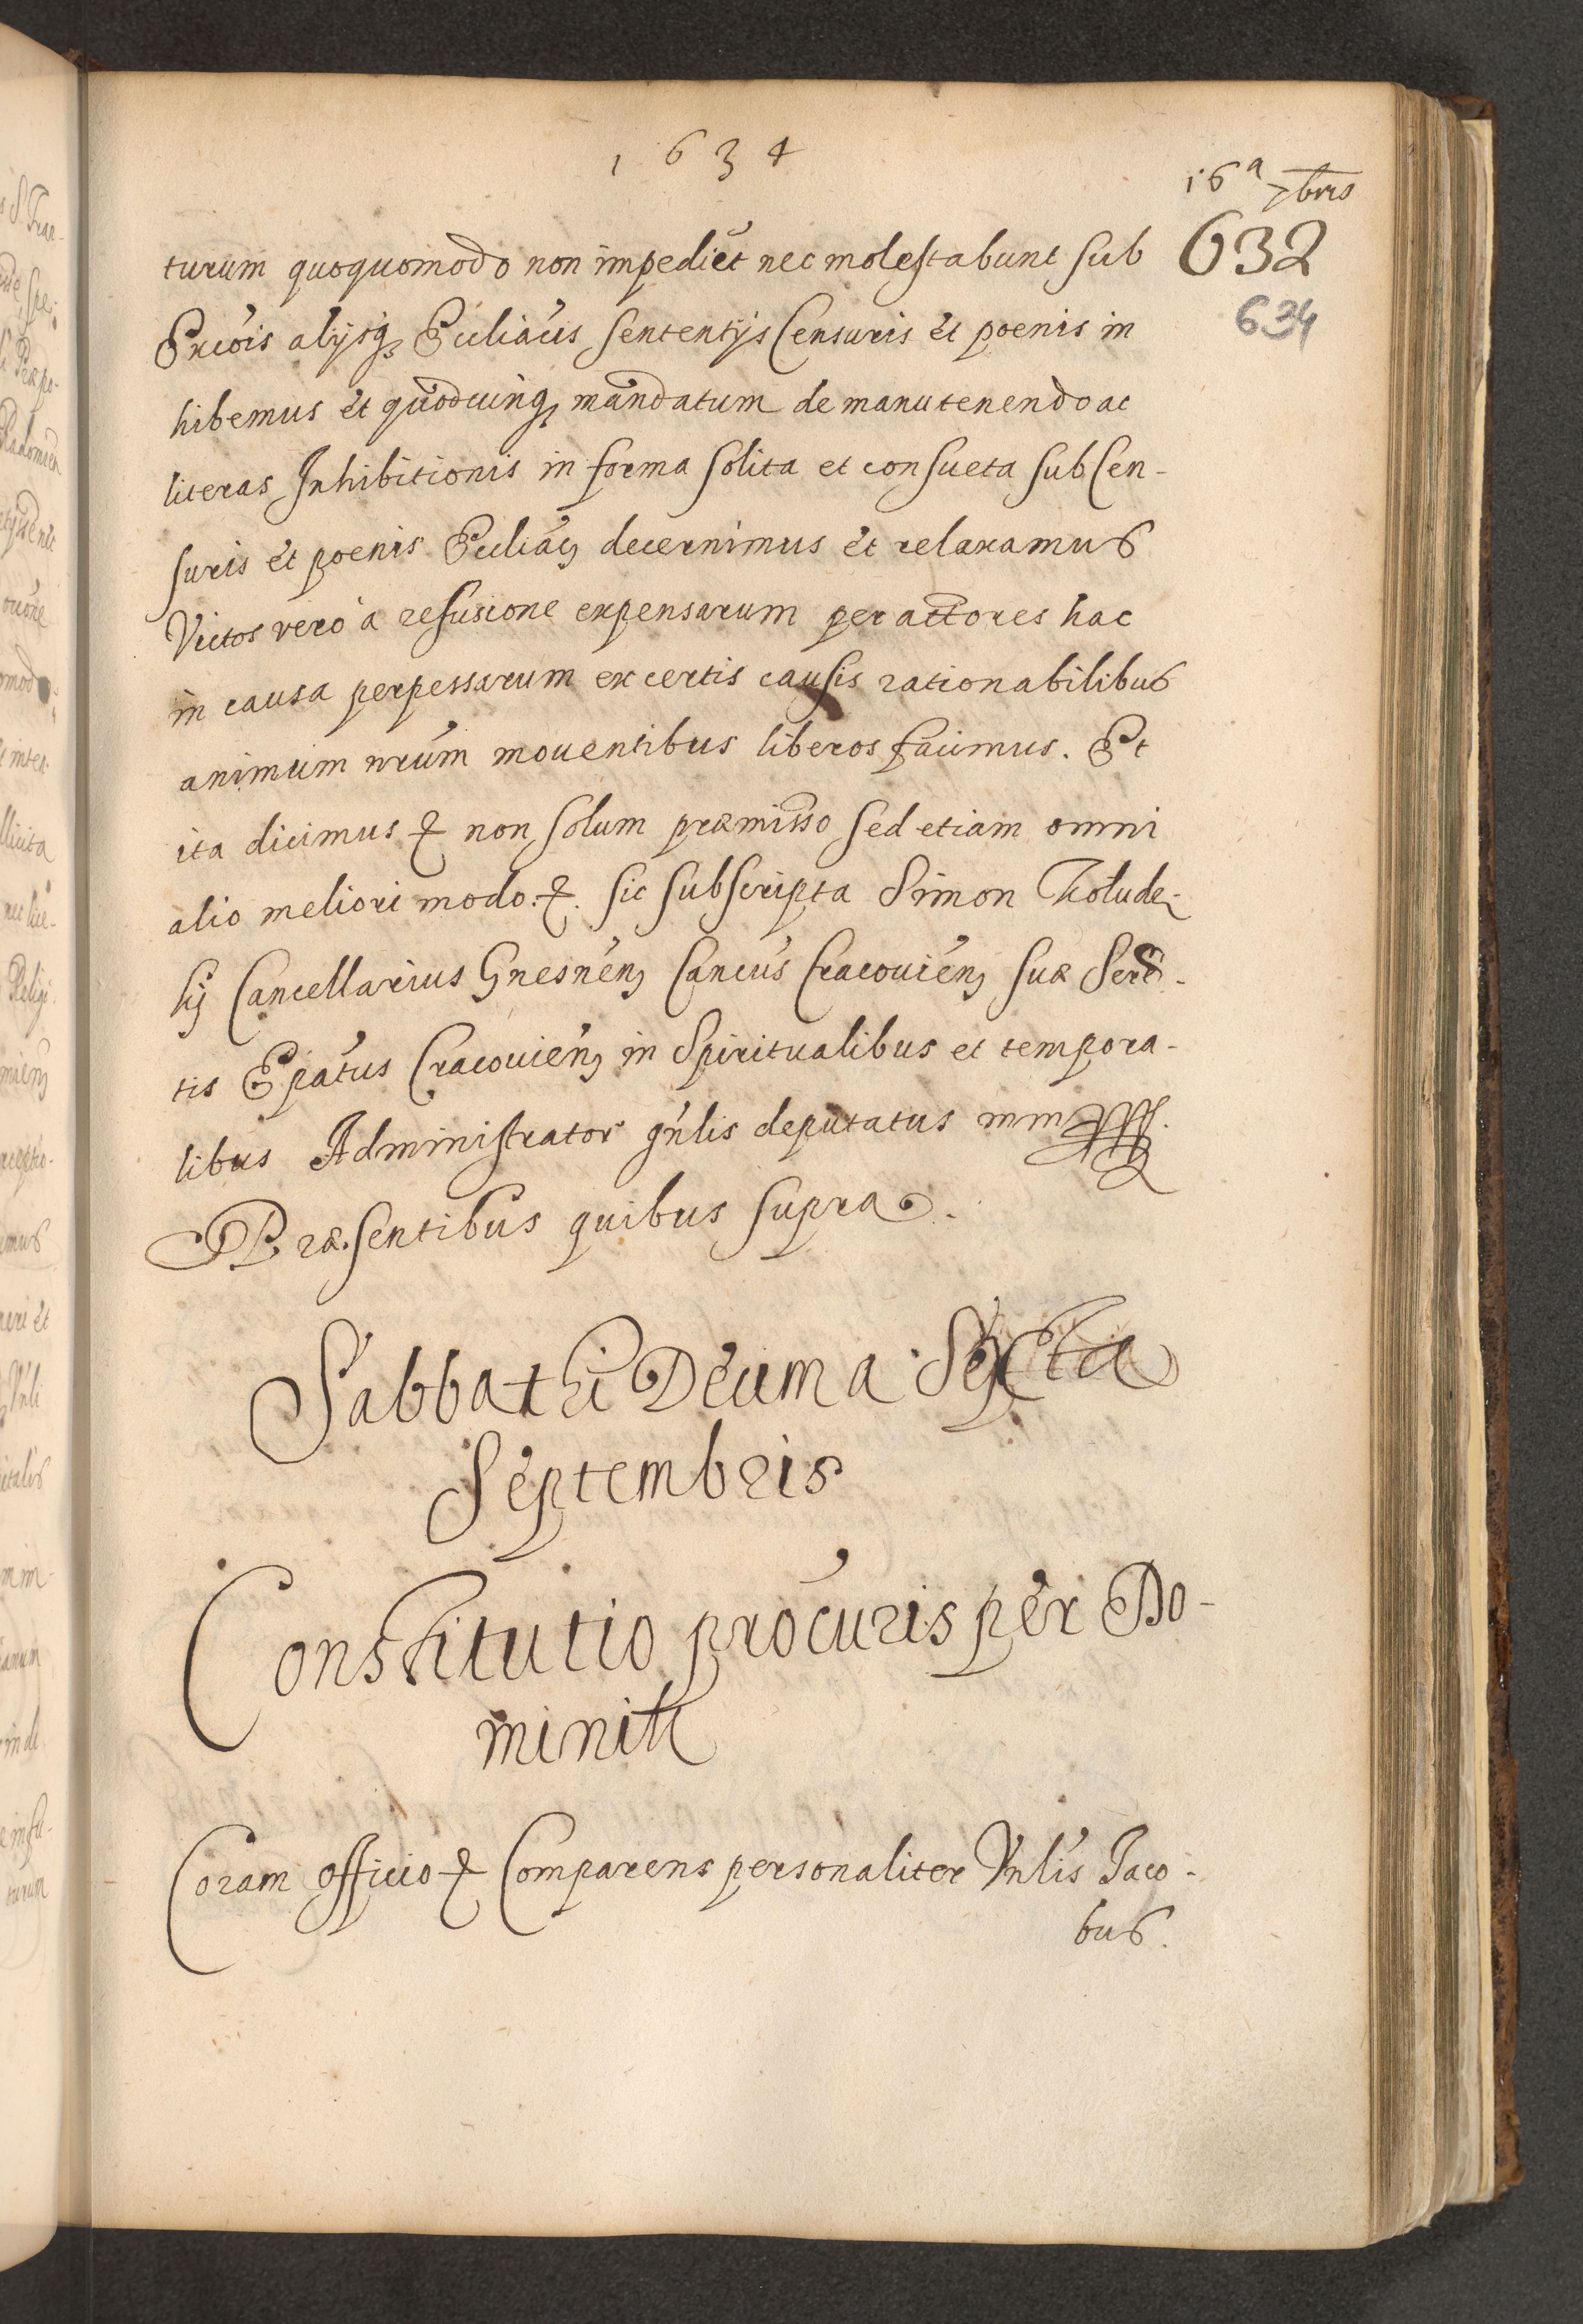 1634
16ª 7bris
632
634
turum quoquomodo non impediēt nec molestabunt sub
Excōis alijsq₃ Eccliācis sententijs Censuris et poenis in
hibemus et quodcunq₃ mandatum de manutenendo ac
literas Inhibitionis in forma solita et consueta sub Cen-
suris et poenis Eccliāĉ decernimus et relaxamus
Victos vero à refusione expensarum per actores hac
in causa perpessarum ex certis causis rationabilibus
animum nrūm mouentibus liberos facimus. Et
ita dicimus & non solum præmisso sed etiam omni
alio meliori modo. &. sic subscripta Simon Kołude-
ski Cancellarius Gnesnēn Cancūs Cracouiēn suæ Sede-
tis Epātus Cracouiēn in Spiritualibus et tempora-
libus Administrator gńlis deputatus mm
Præsentibus quibus supra.
Sabbathi Decima Sexta
Septembris
Constitutio procuris per Do-
minik
Coram officio & Comparens personaliter Vnlis Iaco-
bus.